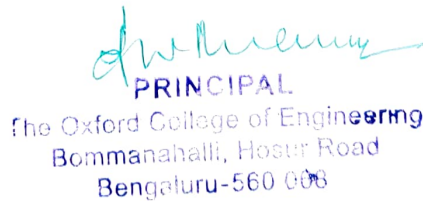 PRINCIPAL
The Oxford College of Engineering
Bommanahalli, Hosur Road
Bengaluru-560 068